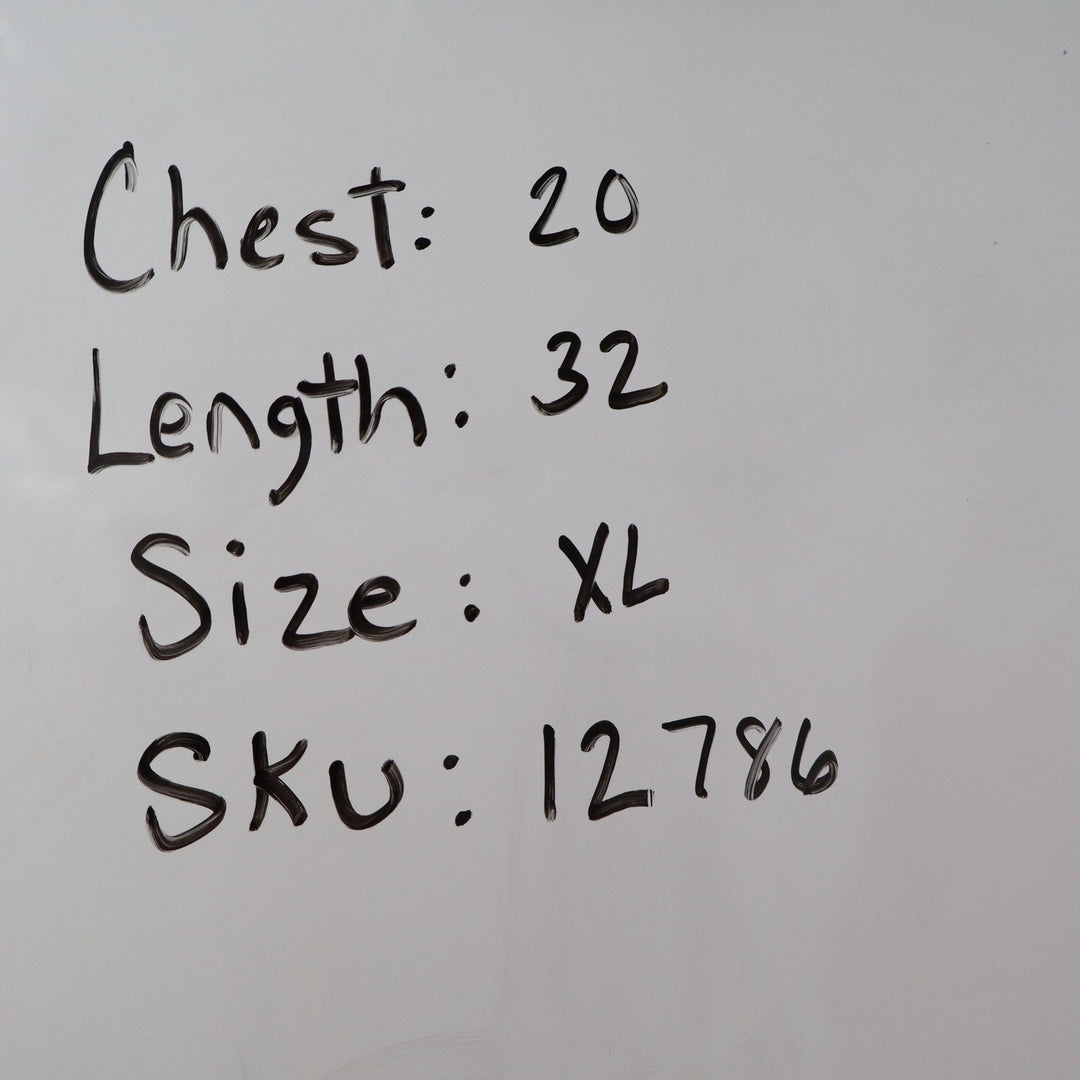 Chest: 20
Length: 32
Size: XL
SKU: 12786